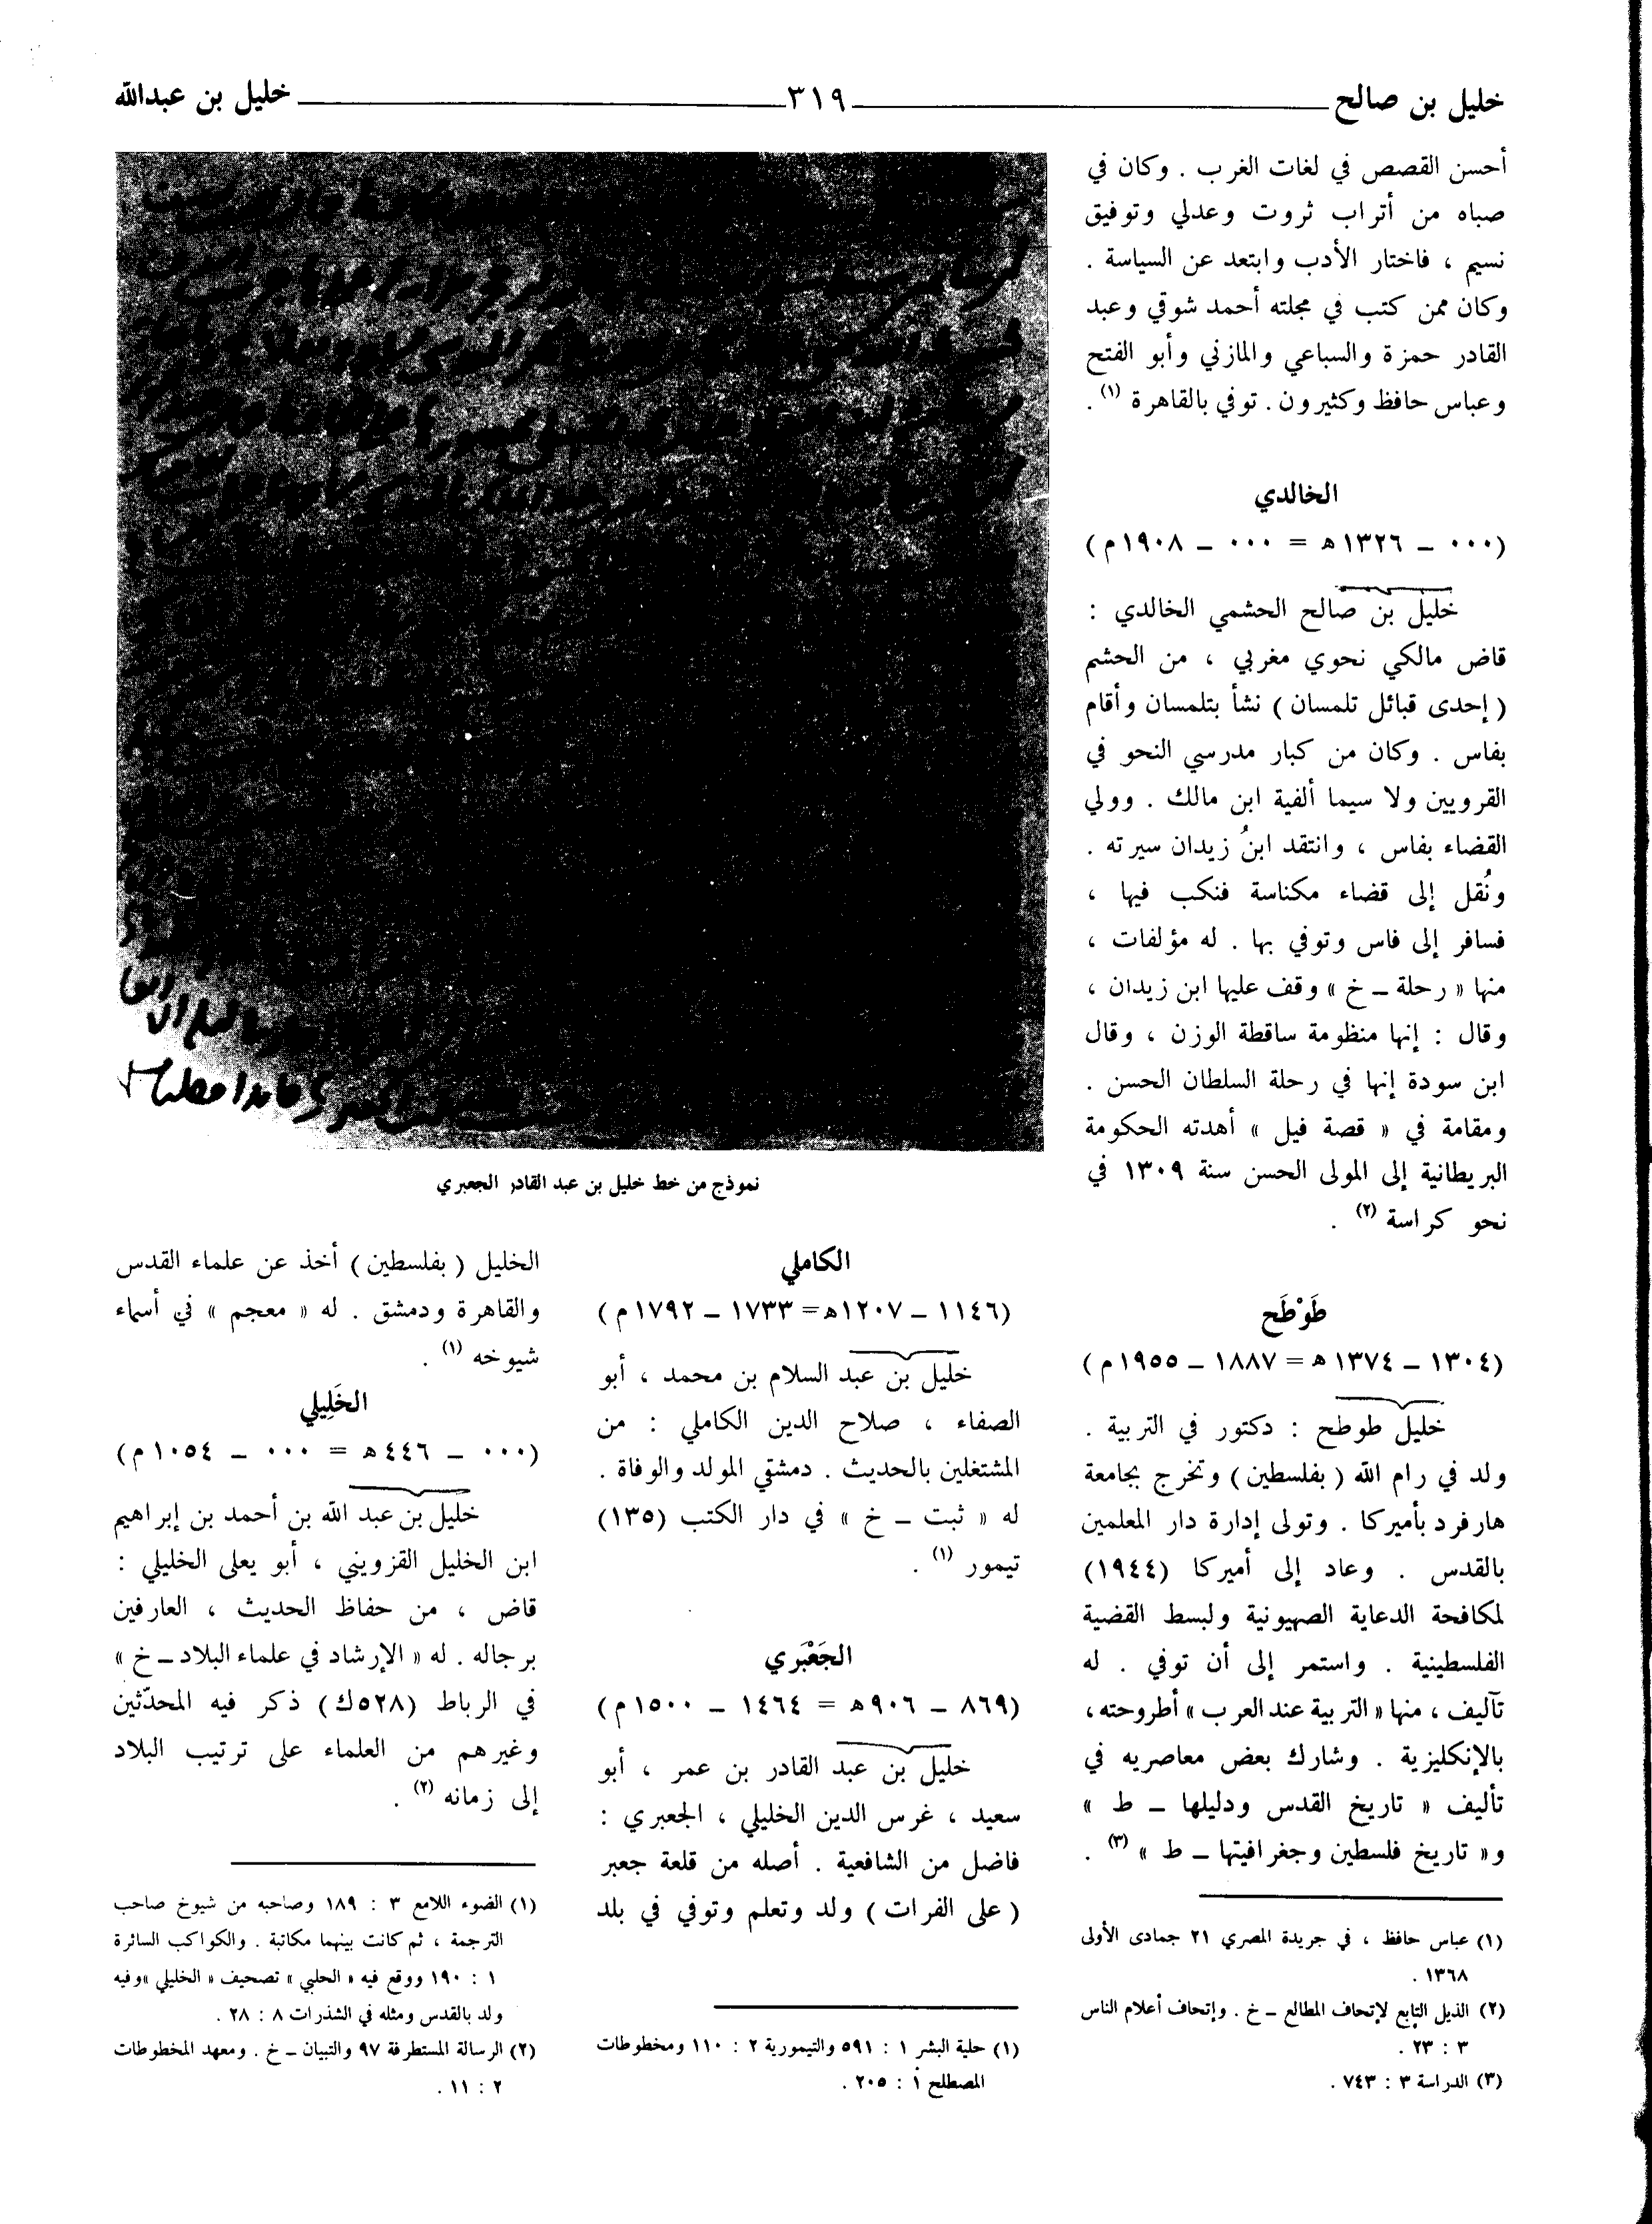 خليل بن صالح ٣١٩ خليل بن عبدالله
أحسن القصص في لغات الغرب . وكان في
صباه من أتراب ثروت وعدلي وتوفيق
نسيم ، فاختار الأدب وابتعد عن السياسة .
وكان ممن كتب في مجلته أحمد شوقي وعبد
القادر حمزة والسباعي والمازني وأبو الفتح
وعباس حافظ وكثيرون . توفي بالقاهرة (١) .
الخالدي
(٠٠٠ ــ ١٣٢٦ ه = ٠٠٠ ــ ١٩٠٨ م)
خليل بن صالح الحشمي الخالدي :
قاض مالكي نحوي مغربي ، من الحشم
( إحدى قبائل تلمسان ) نشأ بتلمسان وأقام
بفاس . وكان من كبار مدرسي النحو في
القرويين ولا سيما ألفية ابن مالك . وولي
القضاء بفاس ، وانتقد ابنُ زيدان سيرته .
ونُقل إلى قضاء مكناسة فنكب فيها ،
فسافر إلى فاس وتوفي بها . له مؤلفات ،
منها « رحلة ــ خ » وقف عليها ابن زيدان ،
وقال : إنها منظومة ساقطة الوزن ، وقال
ابن سودة إنها في رحلة السلطان الحسن .
ومقامة في « قصة فيل » أهدته الحكومة
البريطانية إلى المولى الحسن سنة ١٣٠٩ في
نحو كراسة (٢) .
طَوْطَح
(١٣٠٤ ــ ١٣٧٤ ه = ١٨٨٧ ــ ١٩٥٥ م)
خليل طوطح : دكتور في التربية .
ولد في رام الله ( بفلسطين ) وتخرج بجامعة
هارفرد بأميركا . وتولى إدارة دار المعلمين
بالقدس . وعاد إلى أميركا (١٩٤٤)
لمكافحة الدعاية الصهيونية ولبسط القضية
الفلسطينية . واستمر إلى أن توفي . له
تآليف ، منها « التربية عند العرب » أطروحته ،
بالإنكليزية . وشارك بعض معاصريه في
تأليف « تاريخ القدس ودليلها ــ ط »
و« تاريخ فلسطين وجغرافيتها ــ ط » (٣) .
(١) عباس حافظ ، في جريدة المصري ٢١ جمادى الأولى
١٣٦٨ .
(٢) الذيل التابع لإتحاف المطالع ــ خ . وإتحاف أعلام الناس
٣ : ٢٣ .
(٣) الدراسة ٣ : ٧٤٣ .
نموذج من خط خليل بن عبد القادر الجعبري
الكاملي
(١١٤٦ ــ ١٢٠٧ه = ١٧٣٣ ــ ١٧٩٢ م)
خليل بن عبد السلام بن محمد ، أبو
الصفاء ، صلاح الدين الكاملي : من
المشتغلين بالحديث . دمشقي المولد والوفاة .
له « ثبت ــ خ » في دار الكتب (١٣٥)
تيمور (١) .
الجَعْبَري
(٨٦٩ ــ ٩٠٦ه = ١٤٦٤ ــ ١٥٠٠م)
خليل بن عبد القادر بن عمر ، أبو
سعيد ، غرس الدين الخليلي ، الجعبري :
فاضل من الشافعية . أصله من قلعة جعبر
( على الفرات ) ولد وتعلم وتوفي في بلد
(١) حلية البشر ١ : ٥٩١ والتيمورية ٢ : ١١٠ ومخطوطات
المصطلح ١ : ٢٠٥ .
الخليل ( بفلسطين ) أخذ عن علماء القدس
والقاهرة ودمشق . له « معجم » في أسماء
شيوخه (١) .
الخَلِيلي
(٠٠٠ ــ ٤٤٦ه = ٠٠٠ ــ ١٠٥٤م)
خليل بن عبد الله بن أحمد بن إبراهيم
ابن الخليل القزويني ، أبو يعلى الخليلي :
قاض ، من حفاظ الحديث ، العارفين
برجاله . له « الإرشاد في علماء البلاد ــ خ »
في الرباط (٥٢٨ك) ذكر فيه المحدّثين
وغيرهم من العلماء على ترتيب البلاد
إلى زمانه (٢) .
(١) الضوء اللامع ٣ : ١٨٩ وصاحبه من شيوخ صاحب
الترجمة ، ثم كانت بينهما مكاتبة . والكواكب السائرة
١ : ١٩٠ ووقع فيه « الحلبي » تصحيف « الخليلي » وفيه
ولد بالقدس ومثله في الشذرات ٨ : ٢٨ .
(٢) الرسالة المستطرفة ٩٧ والتبيان ــ خ . ومعهد المخطوطات
٢ : ١١ .